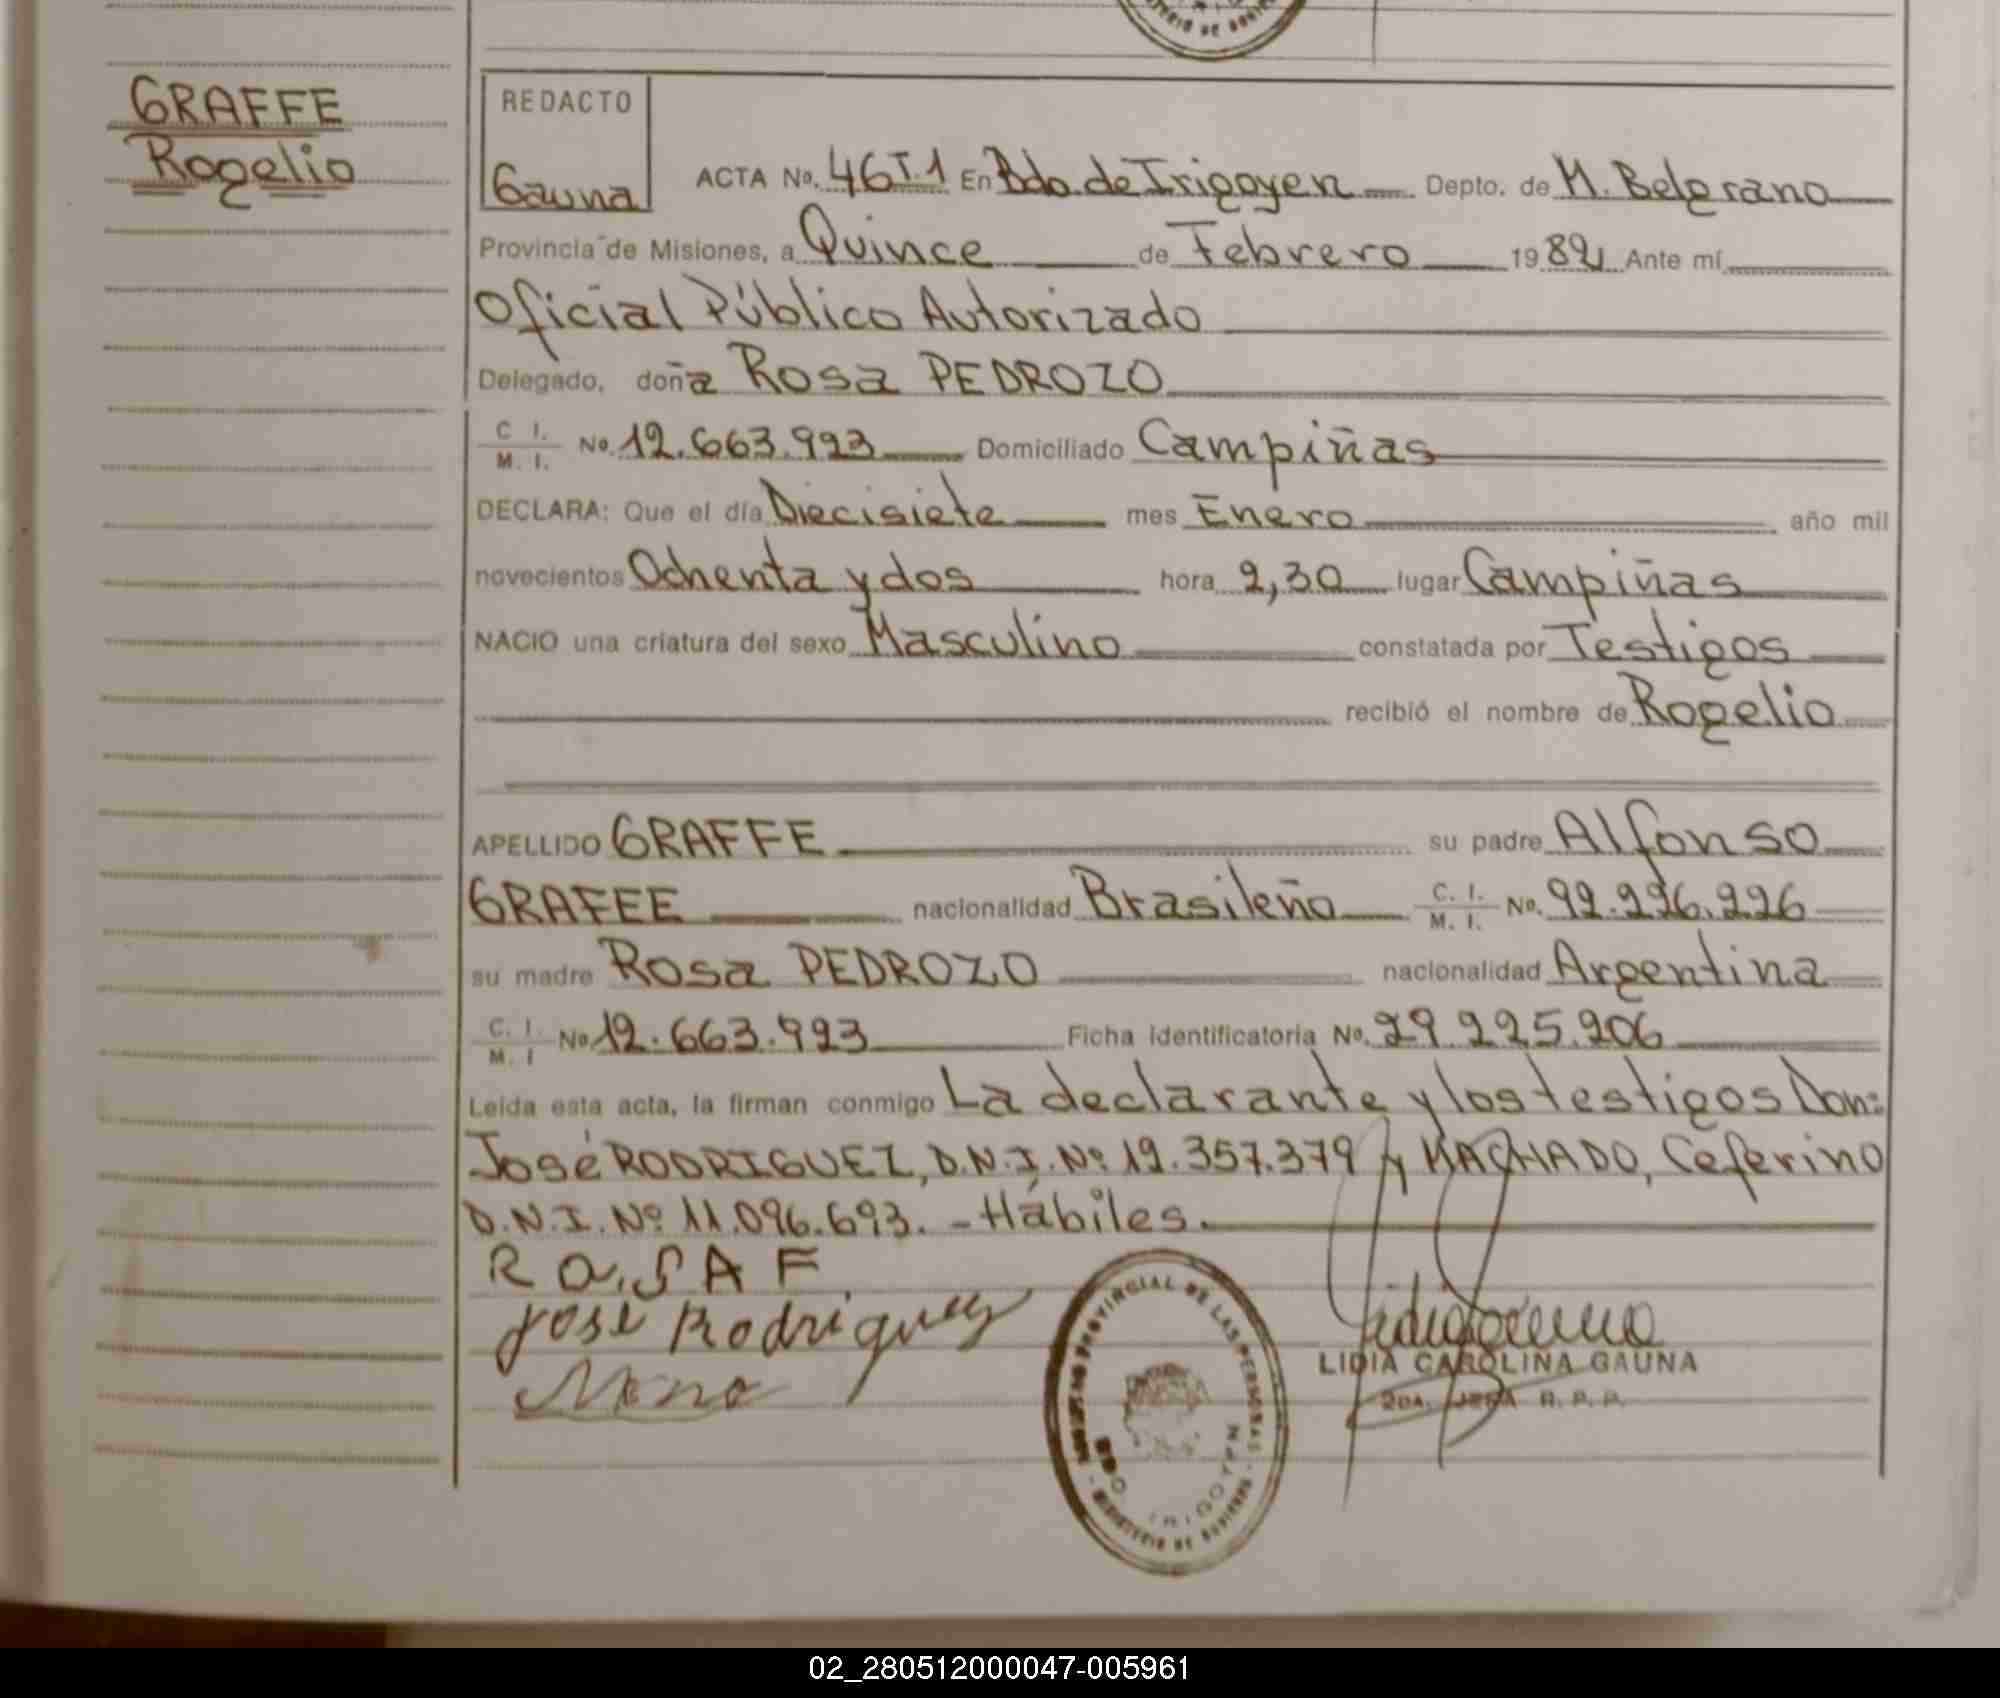 GRAFFE
Rogelio
REDACTO
Gauna
ACTA No. 46 T.1 En Bdo. de Irigoyen Depto. de M. Belgrano
Provincia de Misiones, a Quince de Febrero 1982 Ante mí
Oficial Público Autorizado
Delegado, doña Rosa PEDROZO
C I. M. I. No. 12.663.993 Domiciliado Campiñas
DECLARA: Que el día Diecisiete mes Enero año mil
novecientos Ochenta y dos hora 2,30 lugar Campiñas
NACIO una criatura del sexo Masculino constatada por Testigos
recibió el nombre de Rogelio
APELLIDO GRAFFE su padre Alfonso
GRAFEE nacionalidad Brasileño C. I. M. I. No. 92.226.226
su madre Rosa PEDROZO nacionalidad Argentina
C. I. M. I No 12.663.993 Ficha Identificatoria No. 29.225.206
Leída esta acta, la firman conmigo La declarante y los testigos Don:
José RODRIGUEZ, D.N.I. Nº 12.357.379 y MACHADO, Ceferino
D.N.I. Nº 11.096.693. - Hábiles.
José Rodriguez
LIDIA CAROLINA GAUNA
2DA. JEFA R. P. P.
PROVINCIAL DE LAS PERSONAS
MINISTERIO DE GOBIERNO
BDO. IRIGOYEN
02_280512000047-005961